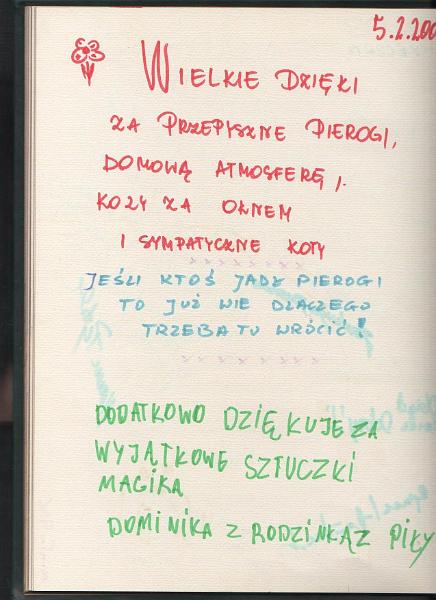 5.2.200
WIELKIE DZIĘKI
ZA PRZEPYSZNE PIEROGI,
DOMOWĄ ATMOSFERĘ,
KOZY ZA OKNEM
I SYMPATYCZNE KOTY
JEŚLI KTOŚ JADŁ PIEROGI
TO JUŻ WIE DLACZEGO
TRZEBA TU WRÓCIĆ!
DODATKOWO DZIĘKUJE ZA
WYJĄTKOWE SZTUCZKI
MAGIKA
DOMINIKA Z RODZINKĄ Z PIŁY